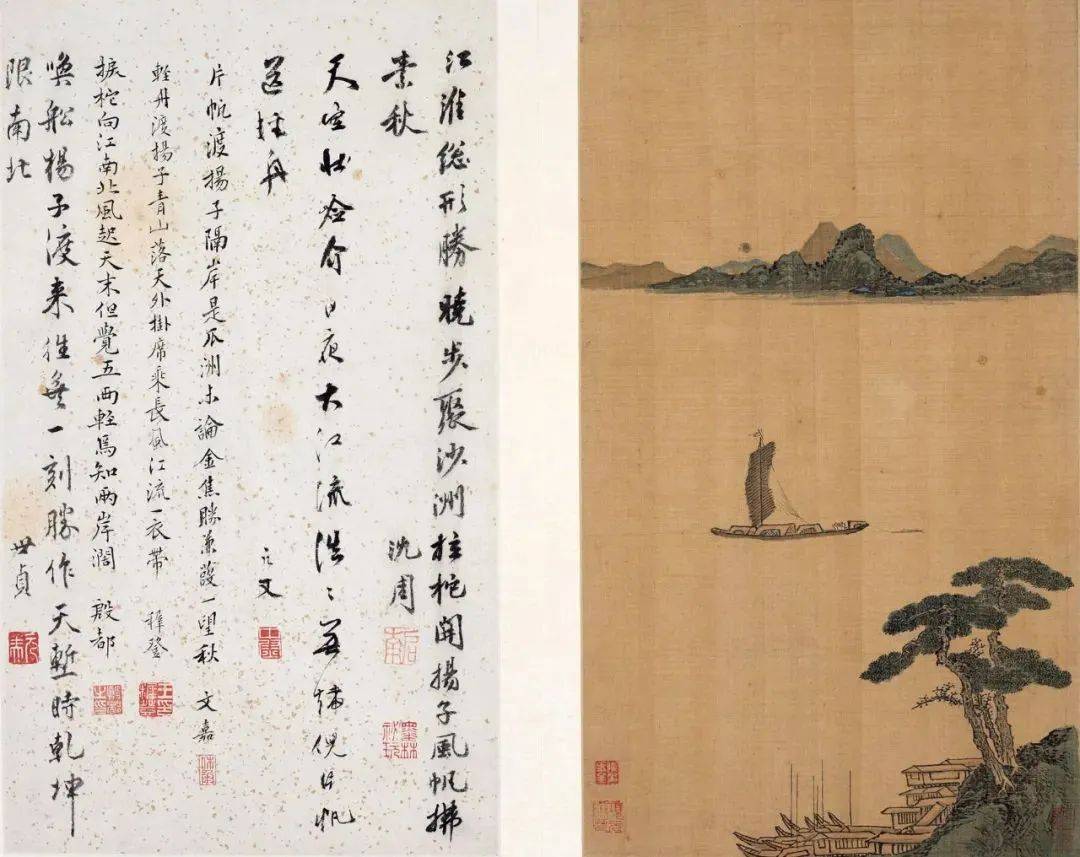 江淮總形勝曉步聚沙洲柂開揚子風帆拂
素秋 沈周
天空日夜大江流浩〻無端倪片帆
舟
片帆渡揚子隔岸是瓜洲未論金焦勝蒹葭一望秋 文嘉
輕舟渡揚子青山落天外掛席乘長風江流一衣帶 穉登
捩柁向江南北風起天末但覺五兩輕焉知兩岸闊 殷都
喚船楊子渡来往無一刻勝作天塹時乾坤
限南北 世貞